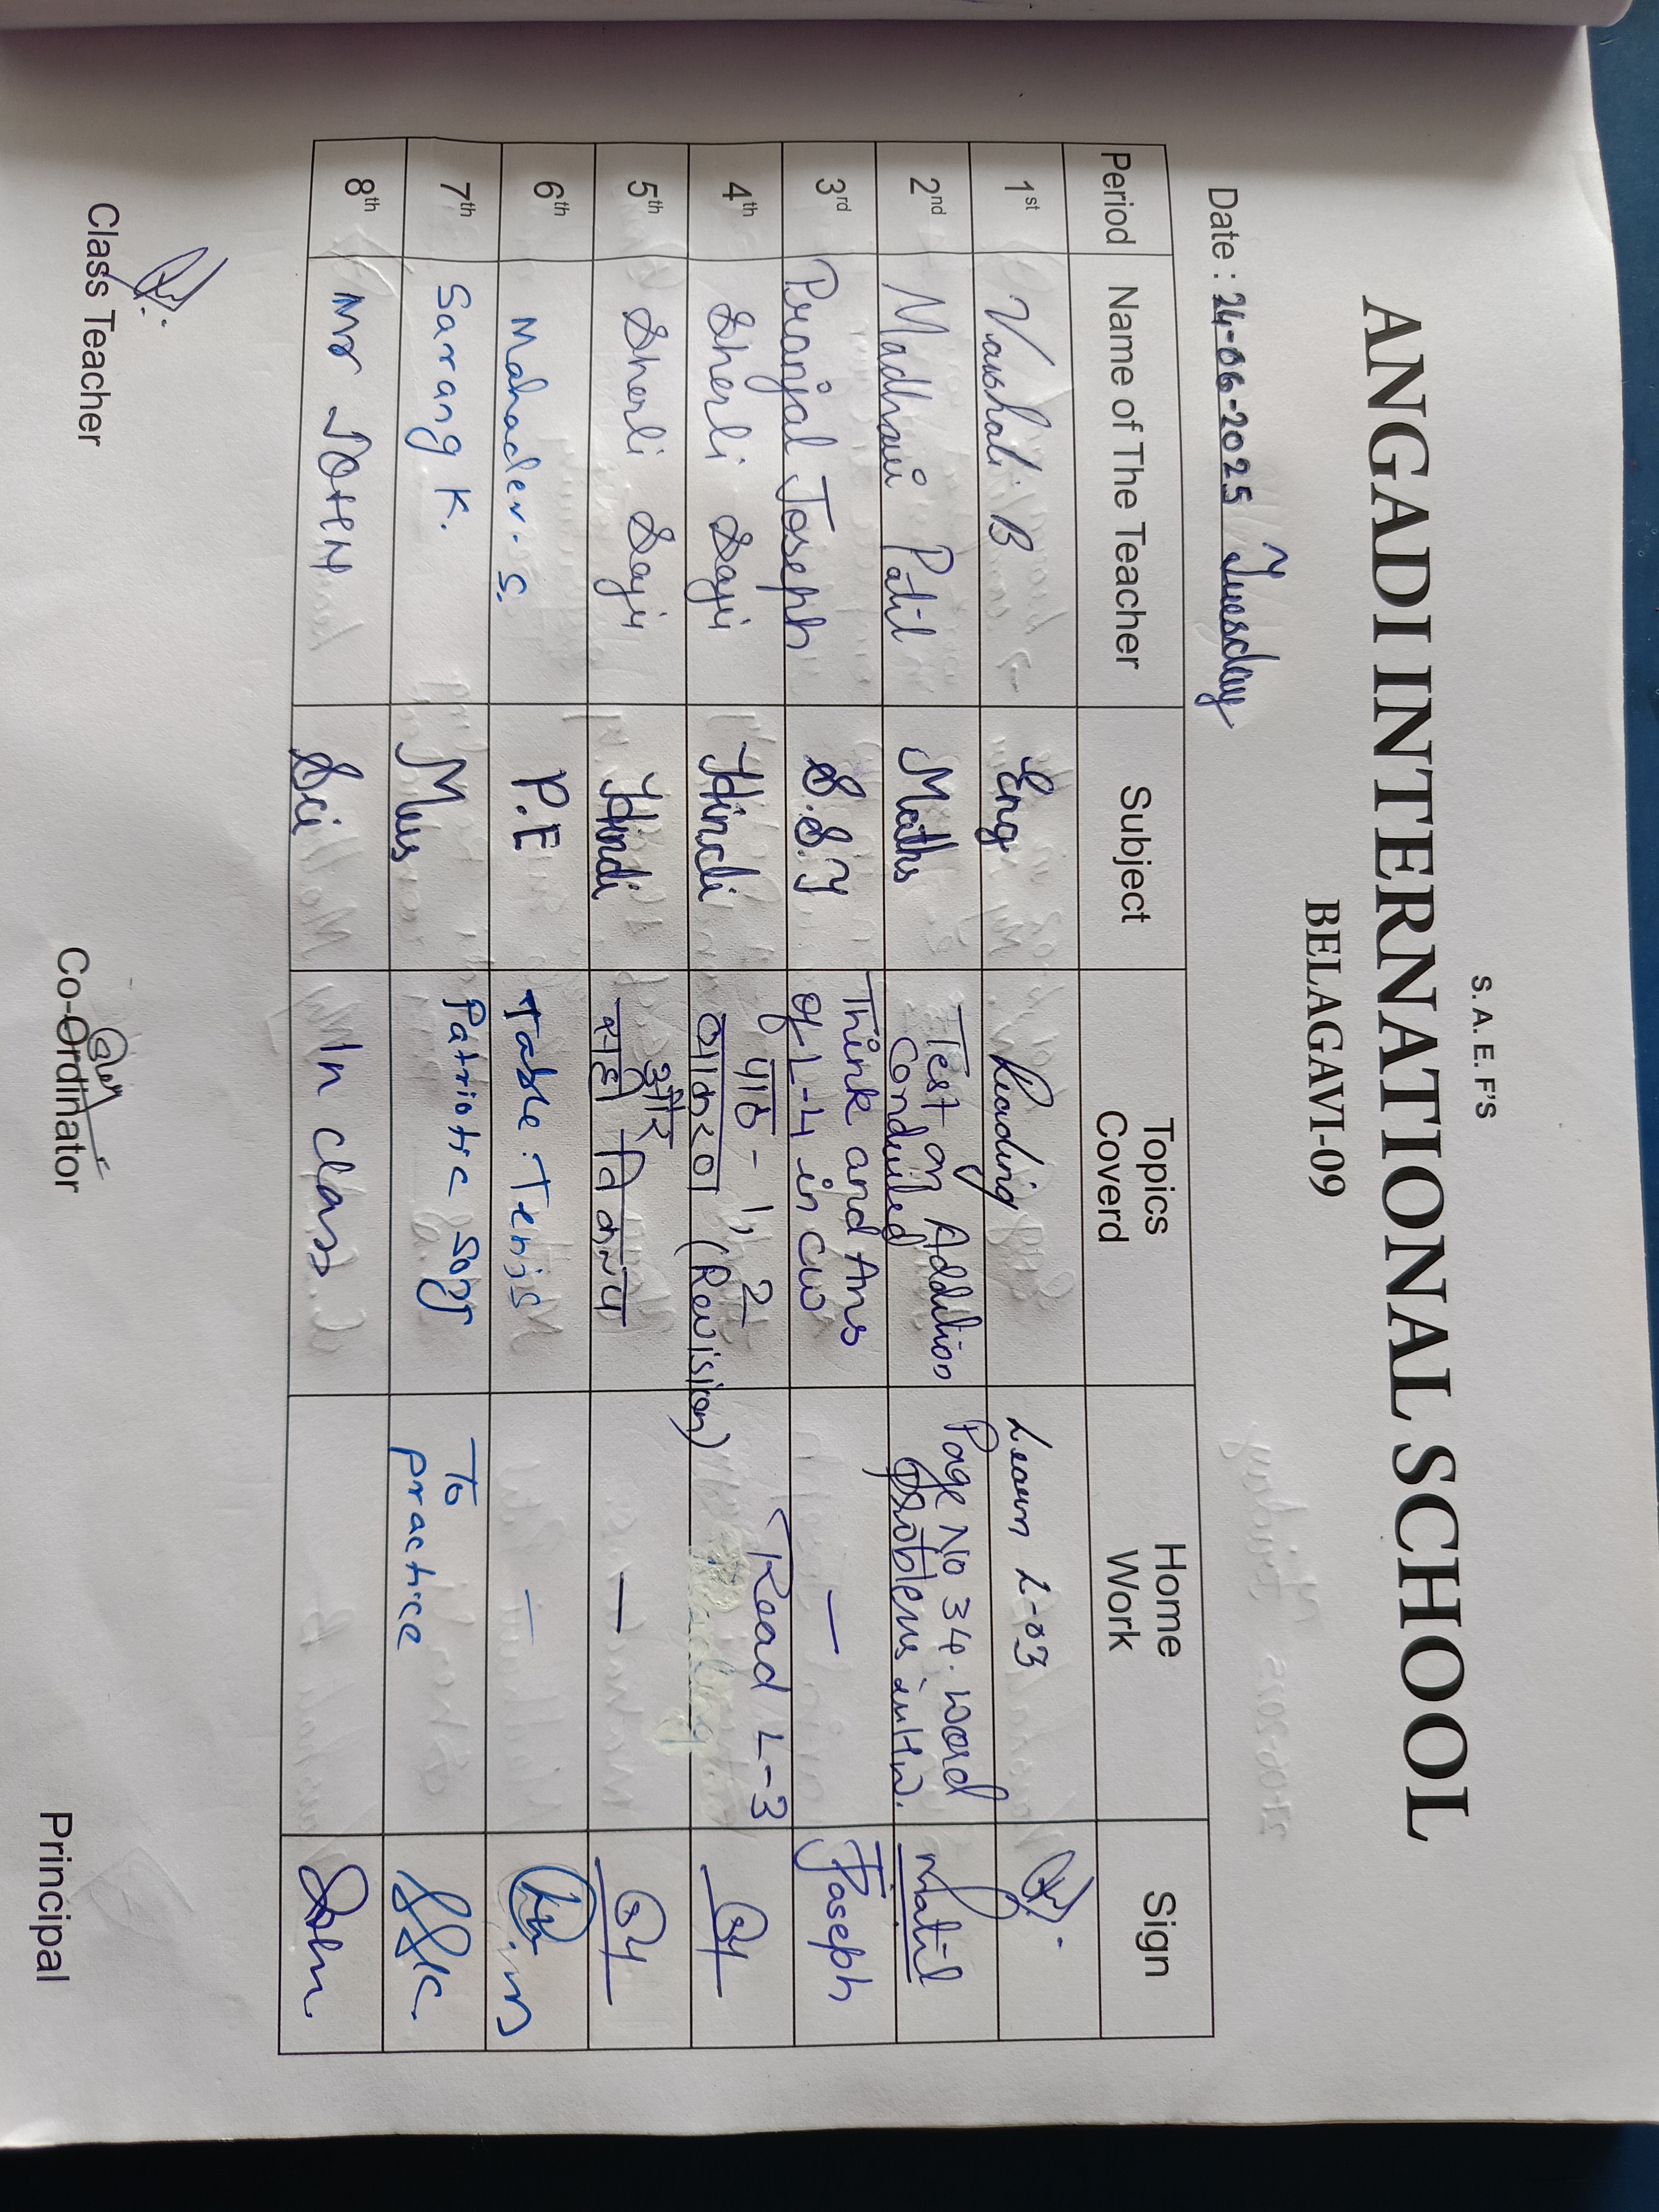 S. A. E. F'S
ANGADI INTERNATIONAL SCHOOL
BELAGAVI-09
Date : 24-06-2025 Tuesday
Period Name of The Teacher Subject Topics Coverd Home Work Sign
1st Vaishali. B Eng Reading Learn L-03
2nd Madhavi Patil Maths Test on Addition Conducted Page No 34. word problems in H.W.
3rd Pranjal Joseph S.S.T Think and Ans of L-4 in CW — Joseph
4th Sherli Saji Hindi पाठ - 1, 2 व्याकरण (Revision) Read L-3
5th Sherli Saji Hindi और विकल्प —
6th Mahadev. S. P.E Table Tenis —
7th Sarang K. Mus Patriotic Song To practice
8th Mr JOHN Sci In class John
Class Teacher Co-Ordinator Principal